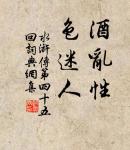 酒亂性
色迷人
水滸傳第四十五
回詞典網集